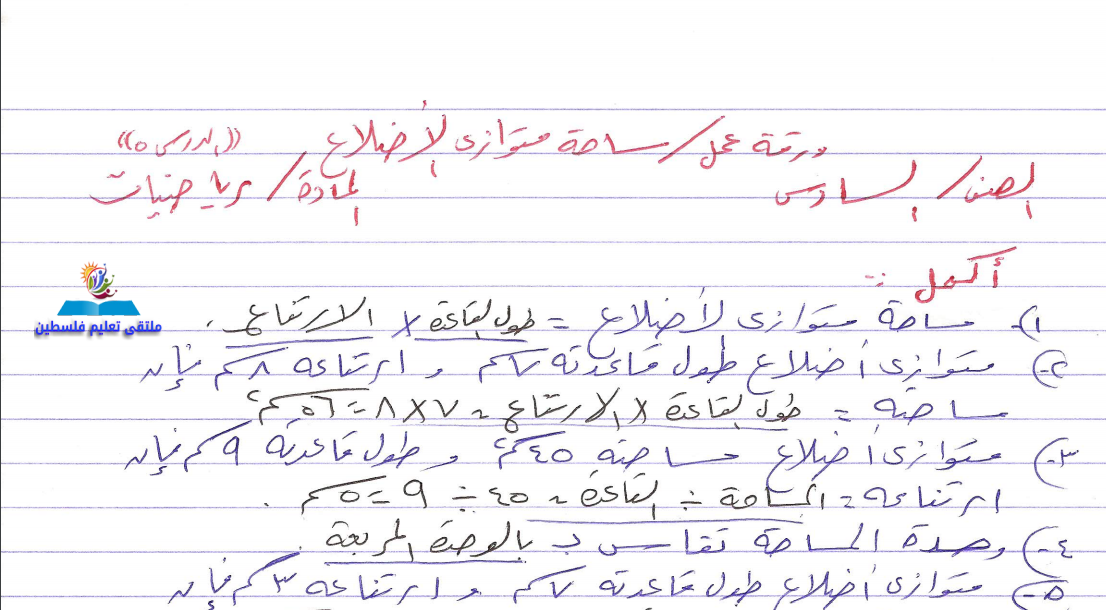 ورقة عمل / مساحة متوازي الأضلاع ((الدرس ٥))
الصف / السادس المادة / رياضيات
أكمل :-
١- مساحة متوازي الأضلاع = طول القاعدة × الارتفاع .
٢-) متوازي أضلاع طول قاعدته ٧ سم و ارتفاعه ٨ سم فإن
مساحته = طول القاعدة × الارتفاع = ٧ × ٨ = ٥٦ سم٢
٣-) متوازي أضلاع مساحته ٤٥ سم٢ و طول قاعدته ٩ سم فإن
ارتفاعه = المساحة ÷ القاعدة = ٤٥ ÷ ٩ = ٥ سم .
٤-) وحدة المساحة تقاس بـ بالوحدة المربعة .
٥-) متوازي أضلاع طول قاعدته ٧ سم و ارتفاعه ٣ سم فإن
ملتقى تعليم فلسطين